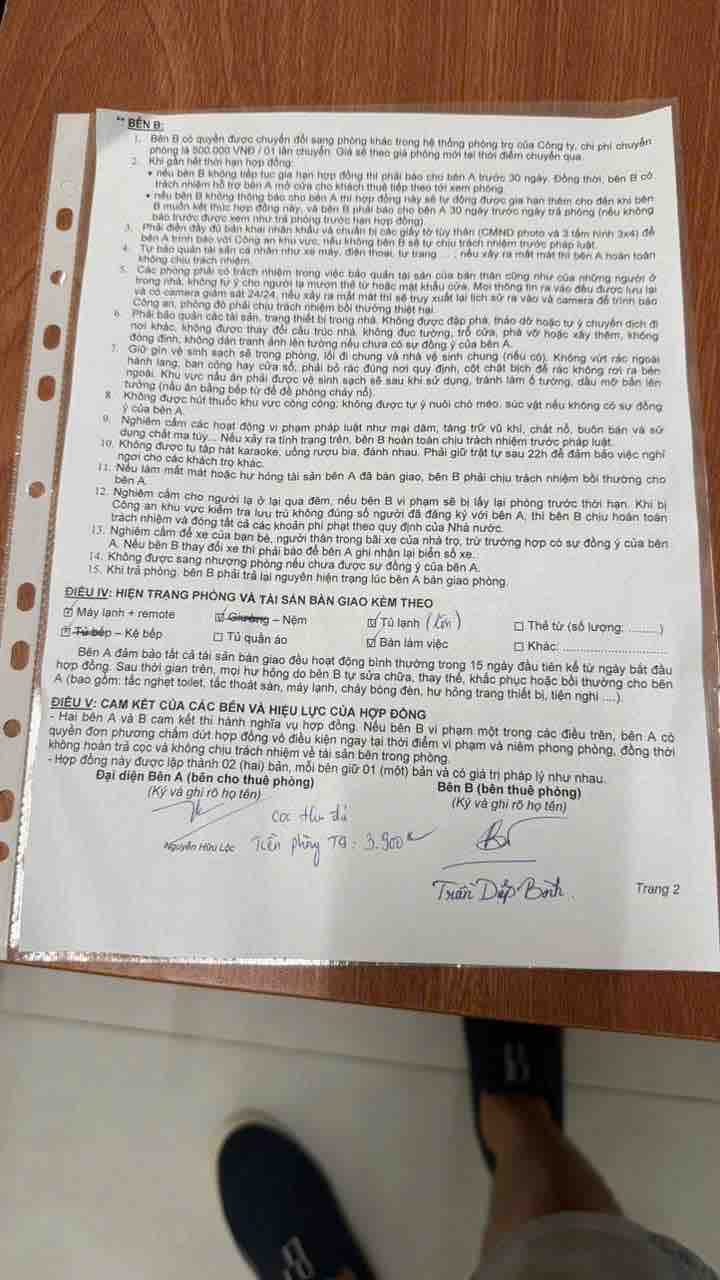 ** BÊN B:
1. Bên B có quyền được chuyển đổi sang phòng khác trong hệ thống phòng trọ của Công ty, chi phí chuyển
phòng là 500.000 VNĐ / 01 lần chuyển. Giá sẽ theo giá phòng mới tại thời điểm chuyển qua.
2. Khi gần hết thời hạn hợp đồng:
• nếu bên B không tiếp tục gia hạn hợp đồng thì phải báo cho bên A trước 30 ngày. Đồng thời, bên B có
trách nhiệm hỗ trợ bên A mở cửa cho khách thuê tiếp theo tới xem phòng.
• nếu bên B không thông báo cho bên A thì hợp đồng này sẽ tự động được gia hạn thêm cho đến khi bên
B muốn kết thúc hợp đồng này, và bên B phải báo cho bên A 30 ngày trước ngày trả phòng (nếu không
báo trước được xem như trả phòng trước hạn hợp đồng).
3. Phải điền đầy đủ bản khai nhân khẩu và chuẩn bị các giấy tờ tùy thân (CMND photo và 3 tấm hình 3x4) để
bên A trình báo với Công an khu vực, nếu không bên B sẽ tự chịu trách nhiệm trước pháp luật.
4. Tự bảo quản tài sản cá nhân như xe máy, điện thoại, tư trang ... , nếu xảy ra mất mát thì bên A hoàn toàn
không chịu trách nhiệm.
5. Các phòng phải có trách nhiệm trong việc bảo quản tài sản của bản thân cũng như của những người ở
trong nhà, không tự ý cho người lạ mượn thẻ từ hoặc mật khẩu cửa. Mọi thông tin ra vào đều được lưu lại
và có camera giám sát 24/24, nếu xảy ra mất mát thì sẽ truy xuất lại lịch sử ra vào và camera để trình báo
Công an, phòng đó phải chịu trách nhiệm bồi thường thiệt hại.
6. Phải bảo quản các tài sản, trang thiết bị trong nhà. Không được đập phá, tháo dỡ hoặc tự ý chuyển dịch đi
nơi khác, không được thay đổi cấu trúc nhà, không đục tường, trổ cửa, phá vỡ hoặc xây thêm, không
đóng đinh, không dán tranh ảnh lên tường nếu chưa có sự đồng ý của bên A.
7. Giữ gìn vệ sinh sạch sẽ trong phòng, lối đi chung và nhà vệ sinh chung (nếu có). Không vứt rác ngoài
hành lang, ban công hay cửa sổ, phải bỏ rác đúng nơi quy định, cột chặt bịch để rác không rơi ra bên
ngoài. Khu vực nấu ăn phải được vệ sinh sạch sẽ sau khi sử dụng, tránh làm ố tường, dầu mỡ bắn lên
tường (nấu ăn bằng bếp từ để đề phòng cháy nổ).
8. Không được hút thuốc khu vực công cộng; không được tự ý nuôi chó mèo, súc vật nếu không có sự đồng
ý của bên A.
9. Nghiêm cấm các hoạt động vi phạm pháp luật như mại dâm, tàng trữ vũ khí, chất nổ, buôn bán và sử
dụng chất ma túy... Nếu xảy ra tình trạng trên, bên B hoàn toàn chịu trách nhiệm trước pháp luật.
10. Không được tụ tập hát karaoke, uống rượu bia, đánh nhau. Phải giữ trật tự sau 22h để đảm bảo việc nghỉ
ngơi cho các khách trọ khác.
11. Nếu làm mất mát hoặc hư hỏng tài sản bên A đã bàn giao, bên B phải chịu trách nhiệm bồi thường cho
bên A.
12. Nghiêm cấm cho người lạ ở lại qua đêm, nếu bên B vi phạm sẽ bị lấy lại phòng trước thời hạn. Khi bị
Công an khu vực kiểm tra lưu trú không đúng số người đã đăng ký với bên A, thì bên B chịu hoàn toàn
trách nhiệm và đóng tất cả các khoản phí phạt theo quy định của Nhà nước.
13. Nghiêm cấm để xe của bạn bè, người thân trong bãi xe của nhà trọ, trừ trường hợp có sự đồng ý của bên
A. Nếu bên B thay đổi xe thì phải báo để bên A ghi nhận lại biển số xe.
14. Không được sang nhượng phòng nếu chưa được sự đồng ý của bên A.
15. Khi trả phòng, bên B phải trả lại nguyên hiện trạng lúc bên A bàn giao phòng.
ĐIỀU IV: HIỆN TRẠNG PHÒNG VÀ TÀI SẢN BÀN GIAO KÈM THEO
☑ Máy lạnh + remote ☑ Giường – Nệm ☑ Tủ lạnh (Kén) ☐ Thẻ từ (số lượng: ........)
☑ Tủ bếp – Kệ bếp ☐ Tủ quần áo ☑ Bàn làm việc ☐ Khác: ........................
Bên A đảm bảo tất cả tài sản bàn giao đều hoạt động bình thường trong 15 ngày đầu tiên kể từ ngày bắt đầu
hợp đồng. Sau thời gian trên, mọi hư hỏng do bên B tự sửa chữa, thay thế, khắc phục hoặc bồi thường cho bên
A (bao gồm: tắc nghẹt toilet, tắc thoát sàn, máy lạnh, cháy bóng đèn, hư hỏng trang thiết bị, tiện nghi ....).
ĐIỀU V: CAM KẾT CỦA CÁC BÊN VÀ HIỆU LỰC CỦA HỢP ĐỒNG
- Hai bên A và B cam kết thi hành nghĩa vụ hợp đồng. Nếu bên B vi phạm một trong các điều trên, bên A có
quyền đơn phương chấm dứt hợp đồng vô điều kiện ngay tại thời điểm vi phạm và niêm phong phòng, đồng thời
không hoàn trả cọc và không chịu trách nhiệm về tài sản bên trong phòng.
- Hợp đồng này được lập thành 02 (hai) bản, mỗi bên giữ 01 (một) bản và có giá trị pháp lý như nhau.
Đại diện Bên A (bên cho thuê phòng) Bên B (bên thuê phòng)
(Ký và ghi rõ họ tên) (Ký và ghi rõ họ tên)
cọc thu đủ
Nguyễn Hữu Lộc Tiền phòng T9: 3.900k
Trần Diệp Bình
Trang 2